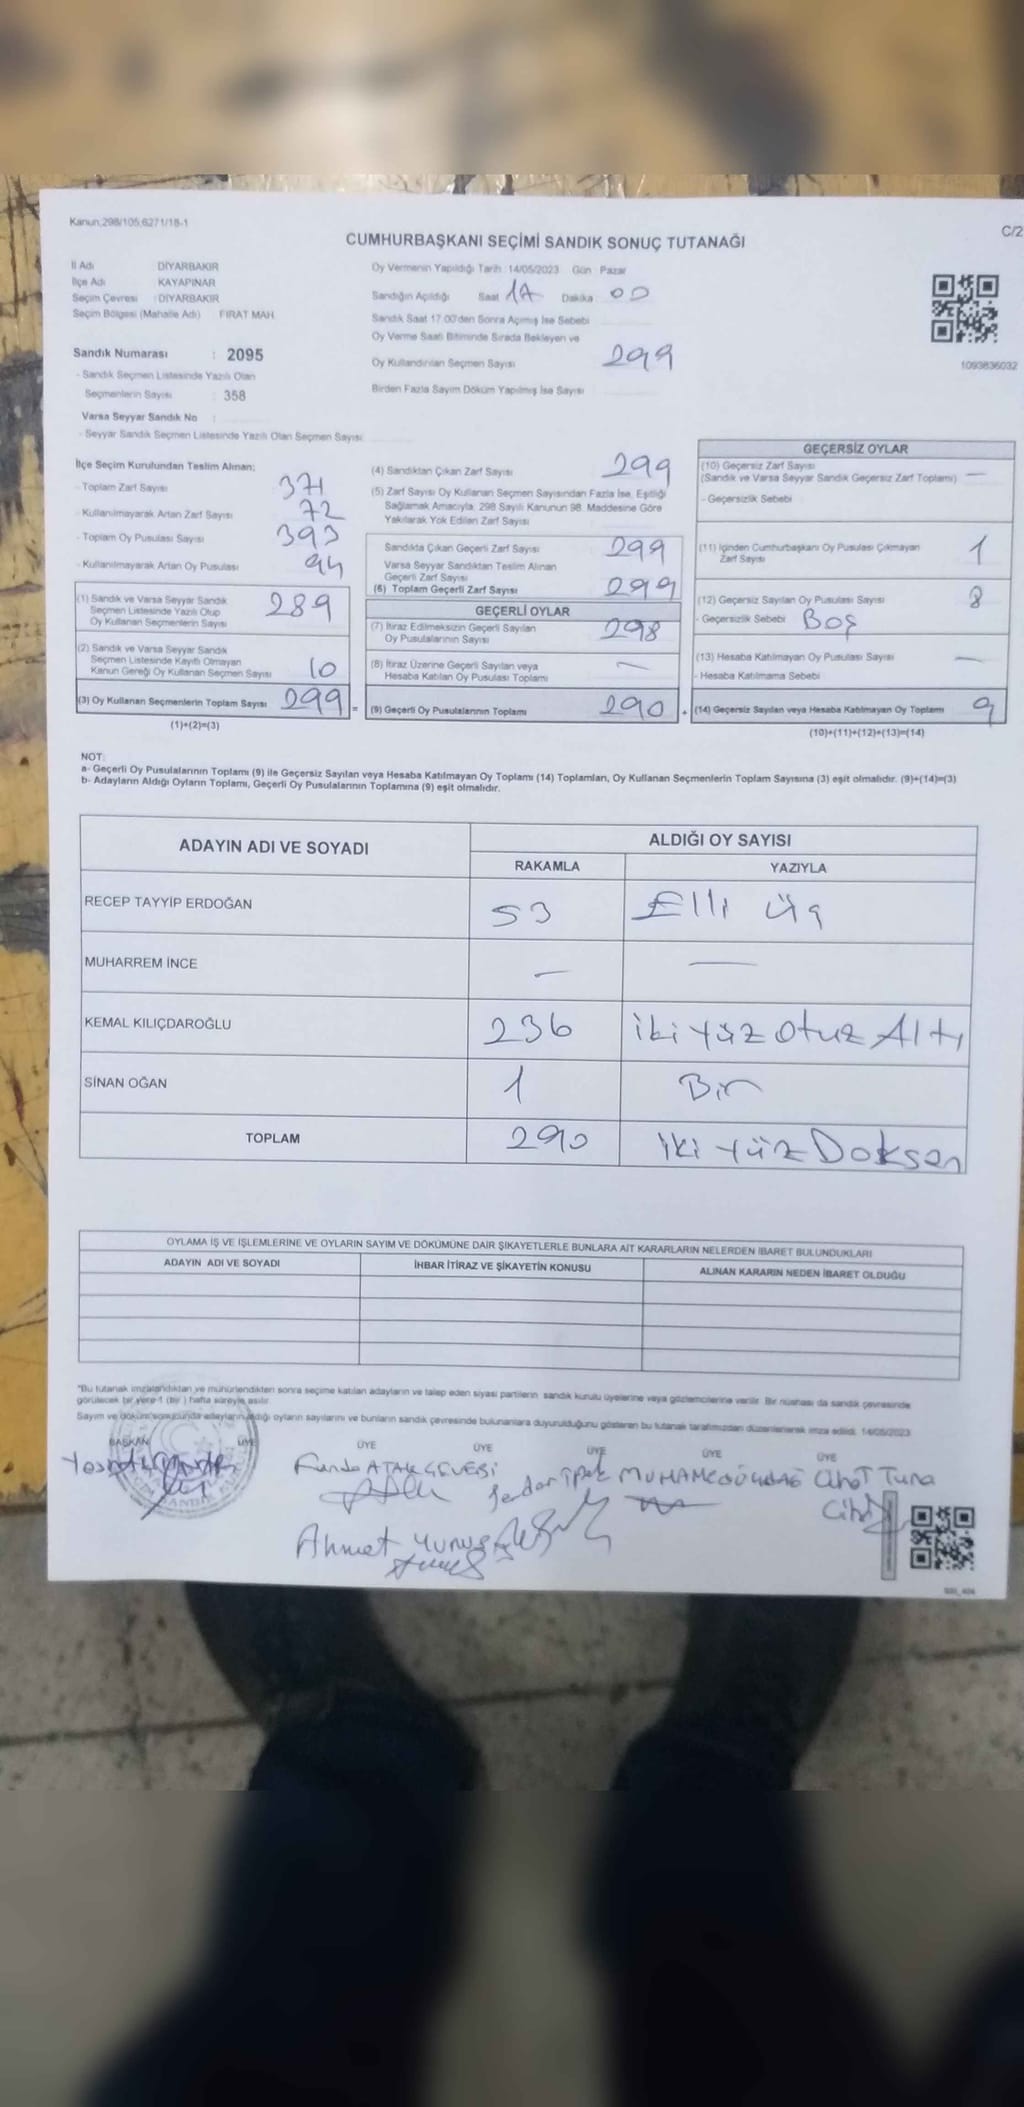 Kanun;298/105,6271/18-1
C/2
CUMHURBAŞKANI SEÇİMİ SANDIK SONUÇ TUTANAĞI
İl Adı DİYARBAKIR
İlçe Adı KAYAPINAR
Seçim Çevresi : DİYARBAKIR
Seçim Bölgesi (Mahalle Adı) FIRAT MAH.
Sandık Numarası : 2095
- Sandık Seçmen Listesinde Yazılı Olan
Seçmenlerin Sayısı : 358
Varsa Seyyar Sandık No :
- Seyyar Sandık Seçmen Listesinde Yazılı Olan Seçmen Sayısı:
Oy Vermenin Yapıldığı Tarih :14/05/2023 Gün : Pazar
Sandığın Açıldığı Saat 17 Dakika 00
Sandık Saat 17.00'den Sonra Açılmış İse Sebebi
Oy Verme Saati Bitiminde Sırada Bekleyen ve
Oy Kullandırılan Seçmen Sayısı 299
Birden Fazla Sayım Döküm Yapılmış İse Sayısı
1093836032
İlçe Seçim Kurulundan Teslim Alınan;
- Toplam Zarf Sayısı 371
- Kullanılmayarak Artan Zarf Sayısı 72
- Toplam Oy Pusulası Sayısı 393
- Kullanılmayarak Artan Oy Pusulası 94
(1) Sandık ve Varsa Seyyar Sandık
Seçmen Listesinde Yazılı Olup
Oy Kullanan Seçmenlerin Sayısı 289
(2) Sandık ve Varsa Seyyar Sandık
Seçmen Listesinde Kayıtlı Olmayan
Kanun Gereği Oy Kullanan Seçmen Sayısı 10
(3) Oy Kullanan Seçmenlerin Toplam Sayısı 299 =
(1)+(2)=(3)
(4) Sandıktan Çıkan Zarf Sayısı 299
(5) Zarf Sayısı Oy Kullanan Seçmen Sayısından Fazla İse, Eşitliği
Sağlamak Amacıyla, 298 Sayılı Kanunun 98. Maddesine Göre
Yakılarak Yok Edilen Zarf Sayısı
Sandıkta Çıkan Geçerli Zarf Sayısı 299
Varsa Seyyar Sandıktan Teslim Alınan
Geçerli Zarf Sayısı
(6) Toplam Geçerli Zarf Sayısı 299
GEÇERLİ OYLAR
(7) İtiraz Edilmeksizin Geçerli Sayılan
Oy Pusulalarının Sayısı 298
(8) İtiraz Üzerine Geçerli Sayılan veya
Hesaba Katılan Oy Pusulası Toplamı —
(9) Geçerli Oy Pusulalarının Toplamı 290 +
GEÇERSİZ OYLAR
(10) Geçersiz Zarf Sayısı
(Sandık ve Varsa Seyyar Sandık Geçersiz Zarf Toplamı) —
- Geçersizlik Sebebi
(11) İçinden Cumhurbaşkanı Oy Pusulası Çıkmayan
Zarf Sayısı 1
(12) Geçersiz Sayılan Oy Pusulası Sayısı 8
- Geçersizlik Sebebi Boş
(13) Hesaba Katılmayan Oy Pusulası Sayısı —
- Hesaba Katılmama Sebebi
(14) Geçersiz Sayılan veya Hesaba Katılmayan Oy Toplamı 9
(10)+(11)+(12)+(13)=(14)
NOT:
a- Geçerli Oy Pusulalarının Toplamı (9) ile Geçersiz Sayılan veya Hesaba Katılmayan Oy Toplamı (14) Toplamları, Oy Kullanan Seçmenlerin Toplam Sayısına (3) eşit olmalıdır. (9)+(14)=(3)
b- Adayların Aldığı Oyların Toplamı, Geçerli Oy Pusulalarının Toplamına (9) eşit olmalıdır.
ADAYIN ADI VE SOYADI ALDIĞI OY SAYISI
RAKAMLA YAZIYLA
RECEP TAYYİP ERDOĞAN 53 Elli Üç
MUHARREM İNCE — —
KEMAL KILIÇDAROĞLU 236 İki Yüz Otuz Altı
SİNAN OĞAN 1 Bir
TOPLAM 290 İki Yüz Doksan
OYLAMA İŞ VE İŞLEMLERİNE VE OYLARIN SAYIM VE DÖKÜMÜNE DAİR ŞİKAYETLERLE BUNLARA AİT KARARLARIN NELERDEN İBARET BULUNDUKLARI
ADAYIN ADI VE SOYADI İHBAR İTİRAZ VE ŞİKAYETİN KONUSU ALINAN KARARIN NEDEN İBARET OLDUĞU
"Bu tutanak imzalandıktan ve mühürlendikten sonra seçime katılan adayların ve talep eden siyasi partilerin sandık kurulu üyelerine veya gözlemcilerine verilir. Bir nüshası da sandık çevresinde
görülecek bir yere 1 (bir) hafta süreyle asılır.
Sayım ve döküm sonucunda adayların aldığı oyların sayılarını ve bunların sandık çevresinde bulunanlara duyurulduğunu gösteren bu tutanak tarafımızdan düzenlenerek imza edildi. 14/05/2023
BAŞKAN ÜYE ÜYE ÜYE ÜYE ÜYE ÜYE
Funda ATAK Serdar İpek Cihat Tuna
Ahmet Yunus